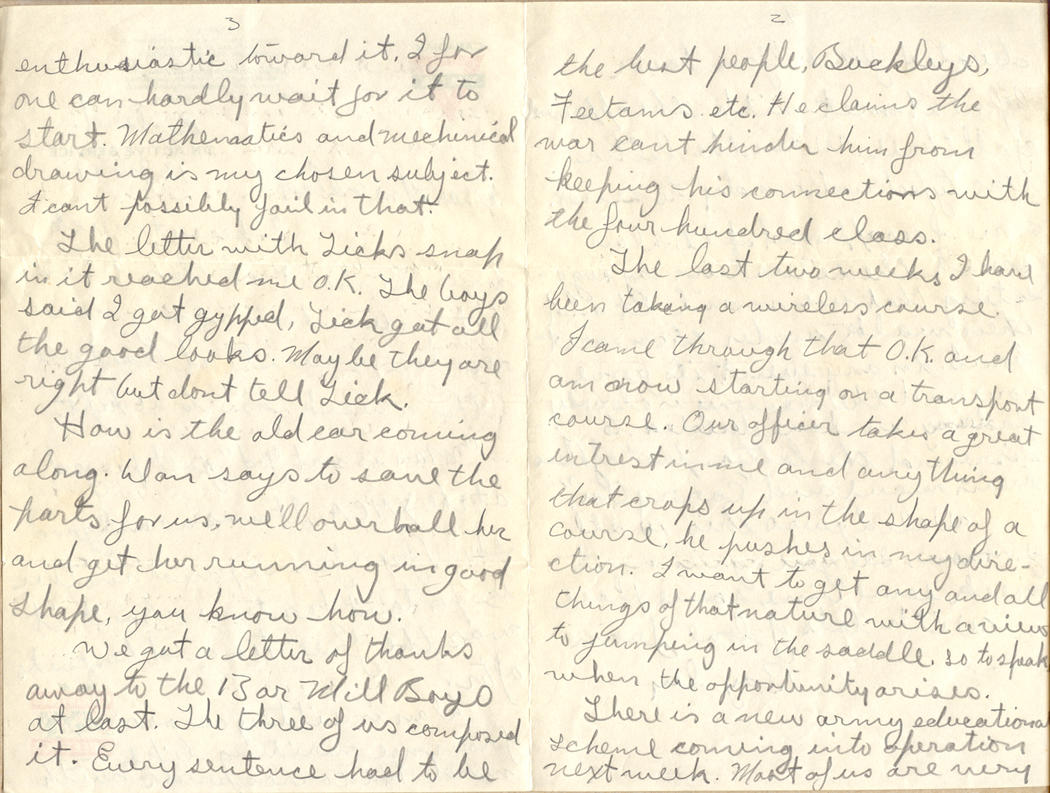 2
the best people, Buckleys,
Feetams etc. He claims the
war cant hinder him from
keeping his connections with
the four hundred class.
The last two weeks I have
been taking a wireless course.
I came through that O.K. and
am now starting on a transport
course. Our officer takes a great
intrest in me and anything
that crops up in the shape of a
course, he pushes in my dire-
ction. I want to get any and all
things of that nature with a view
to jumping in the saddle, so to speak
when the opportunity arises.
There is a new army educational
scheme coming into operation
next week. Most of us are very
3
enthusiastic toward it, I for
one can hardly wait for it to
start. Mathematics and mechinical
drawing is my chosen subject.
I cant possibly fail in that.
The letter with Licks snap
in it reached me O.K. The boys
said I got gypped, Lick got all
the good looks. Maybe they are
right but dont tell Lick.
How is the old car coming
along. Wan says to save the
parts for us, we'll over hall her
and get her running in good
shape, you know how.
We got a letter of thanks
away to the Bar Mill Boys
at last. The three of us composed
it. Every sentence had to be